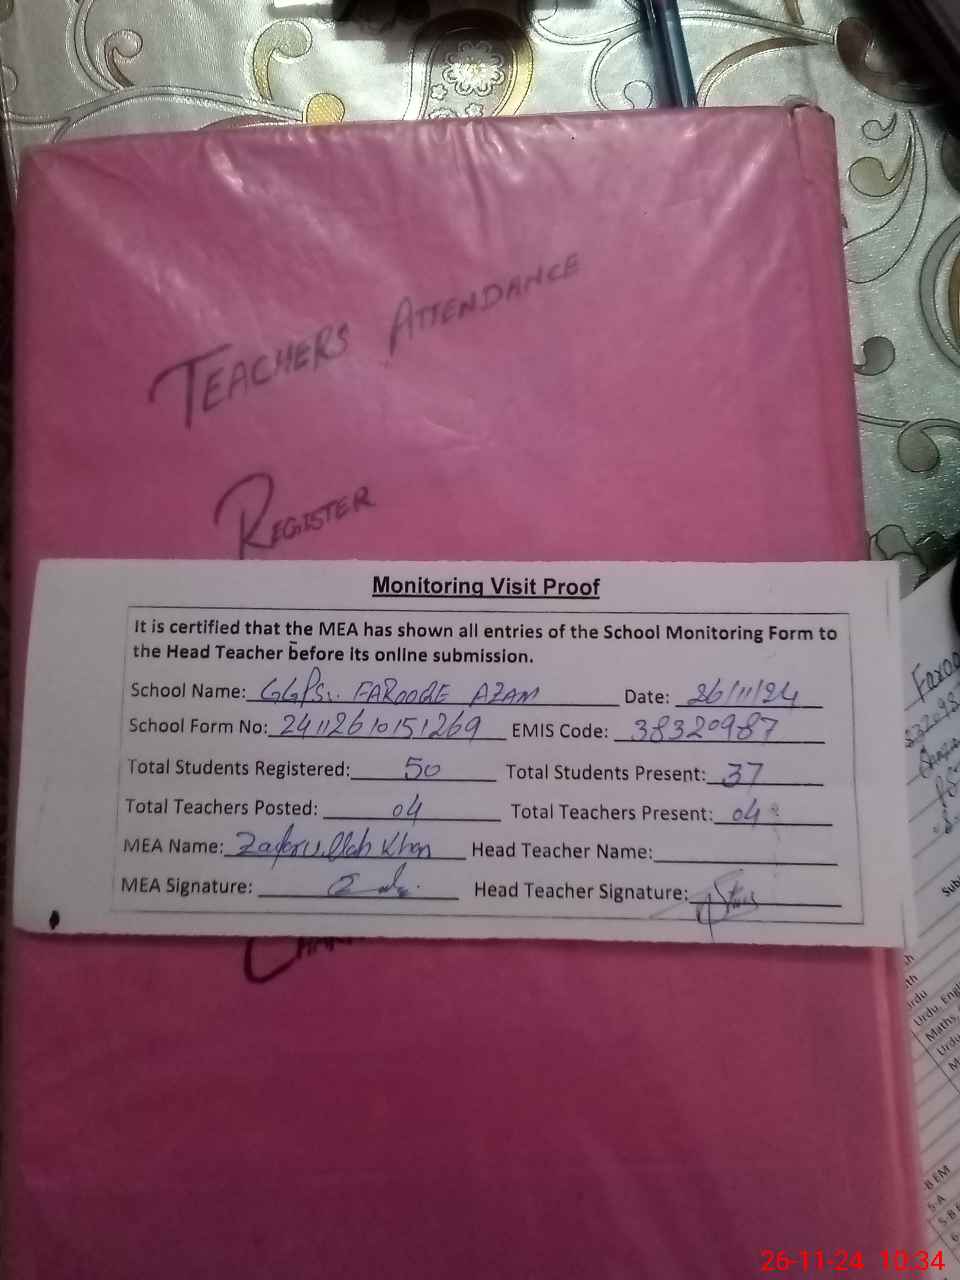 TEACHERS ATTENDANCE
REGISTER
Monitoring Visit Proof
It is certified that the MEA has shown all entries of the School Monitoring Form to
the Head Teacher before its online submission.
School Name: GGPS. FAROOQE AZAM Date: 26/11/24
School Form No: 24112610151269 EMIS Code: 38320987
Total Students Registered: 50 Total Students Present: 37
Total Teachers Posted: 04 Total Teachers Present: 04
MEA Name: Zafarullah Khan Head Teacher Name:
MEA Signature: Head Teacher Signature:
Urdu, Engl
Maths,
Urdu
8 EM
5-A
26-11-24 10:34